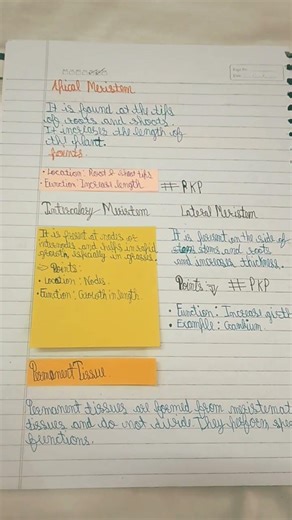 Apical Meristem
It is found at the tips
of roots and shoots.
It increases the length of
the plant.
Points.
• Location: Root & Shoot tips
• Function: Increase length
# PKP
Intercalary Meristem
Lateral Meristem
It is present at nodes or
internodes and helps in rapid
growth especially in grasses.
→ Points:
• Location: Nodes
• Function: Growth in length
It is present on the side of
stems and roots
and increases thickness.
Points # PKP
• Function: Increase girth
• Example: Cambium
Permanent Tissue
Permanent tissues are formed from meristemat
tissues and do not divide. They perform spe
functions.